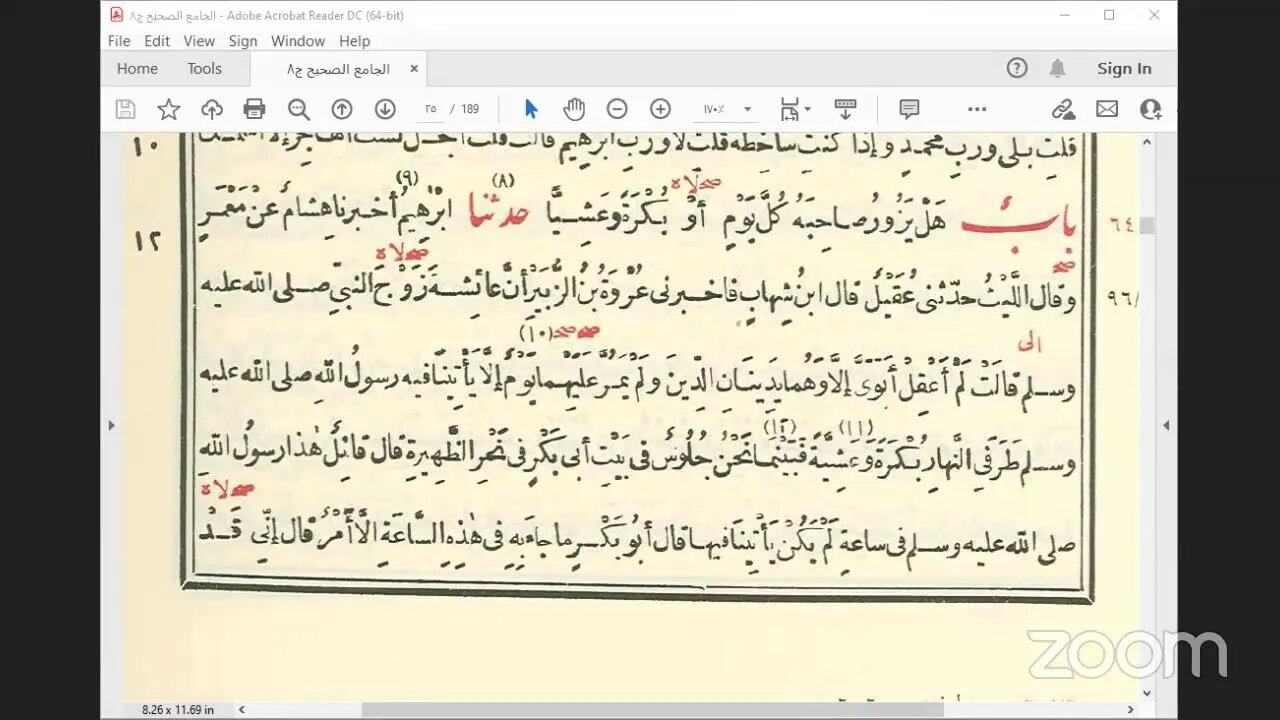 الجامع الصحيح ج٨ - Adobe Acrobat Reader DC (64-bit)
File Edit View Sign Window Help
Home Tools الجامع الصحيح ج٨ × Sign In
٢٥ / 189 ١٧٠٪
١٠
قلت بلى ورب محمد وإذا كنت ساخطه قلت لا ورب ابرهيم قالت قلت أجل لست أهاجر إلا
٦٤
بابٌ هَلْ يَزُورُ صاحِبَهُ كُلَّ يَوْمٍ أَوْ بُكْرَةً وعَشِيًّا حدثنا (٨) ابْرهِيمُ (٩) أخبرنا هشام عن مَعْمَرٍ
١٢
وقال اللَّيْثُ حدّثنى عُقَيْلٌ قال ابنُ شِهابٍ فاخبرنى عُرْوَةُ بنُ الزُّبَيْرِ أنَّ عائشةَ زَوْجَ النبيّ صلى الله عليه
٩٦/
الى
(١٠)
وسلم قالَتْ لَمْ أَعْقِلْ أَبَوَىَّ إلاَّ وهما يَدِينَانِ الدِّينَ ولَمْ يَمُرَّ عليْهما يَوْمٌ إلاَّ يأْتِينَا فيه رسولُ اللهِ صلى الله عليه
(١١) (١٢)
وسلم طَرَفَىِ النَّهارِ بُكْرَةً وعَشِيَّةً فَبَيْنَما نَحْنُ جُلُوسٌ فى بَيْتِ أبى بَكْرٍ فى نَحْرِ الظَّهِيرَةِ قال قائِلٌ هٰذا رسولُ اللهِ
صلى الله عليه وسلم فى ساعةٍ لَمْ يَكُنْ يَأْتِينَا فيها قال أبُو بَكْرٍ ما جاءَ بِهِ فى هٰذِهِ السَّاعَةِ إلاَّ أَمْرٌ قال إنّى قَدْ
zoom
8.26 x 11.69 in